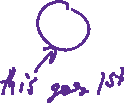 this goes 1st